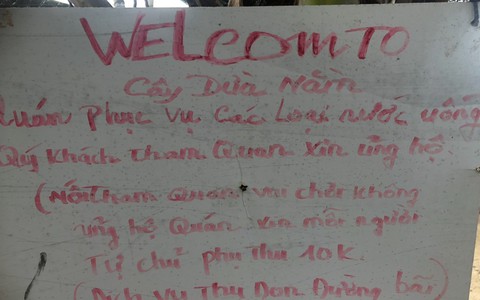 WELCOM TO
Cây Dừa Nằm
Quán Phục Vụ Các Loại nước uống
Quý Khách Tham Quan xin ủng hộ
(Nếu Tham Quan vui chơi không
ủng hộ Quán xin mỗi người
Tự chỉ phụ thu 10K.
(Dịch Vụ Thu Dọn Đường bãi)